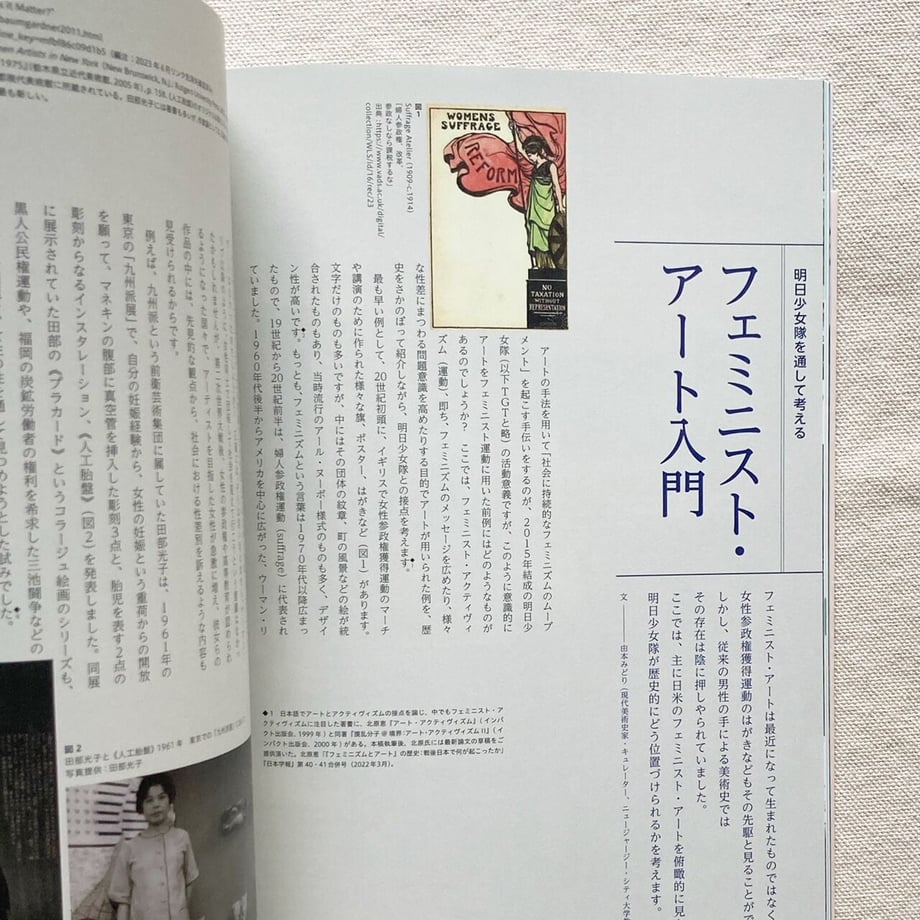 明日少女隊を通して考える
フェミニスト・
アート入門
フェミニスト・アートは最近になって生まれたものではな
女性参政権獲得運動のはがきなどもその先駆と見ることがで
しかし、従来の男性の手による美術史では
その存在は陰に押しやられていました。
ここでは、主に日米のフェミニスト・アートを俯瞰的に見
明日少女隊が歴史的にどう位置づけられるかを考えます。
文――由本みどり(現代美術史家・キュレーター、ニュージャージー・シティ大学
WOMENS
SUFFRAGE
REFORM
NO
TAXATION
WITHOUT
REPRESENTATION
図1
Suffrage Atelier (1909-c.1914)
「婦人参政権、改革、
参政なしなら課税するな」
出典:https://www.vads.ac.uk/digital/
collection/WLS/id/16/rec/23
アートの手法を用いて「社会に持続的なフェミニズムのムーブ
メント」を起こす手伝いをするのが、2015年結成の明日少
女隊(以下TGTと略)の活動意義ですが、このように意識的に
アートをフェミニスト運動に用いた前例にはどのようなものが
あるのでしょうか? ここでは、フェミニスト・アクティヴィ
ズム(運動)、即ち、フェミニズムのメッセージを広めたり、様々
な性差にまつわる問題意識を高めたりする目的でアートが用いられた例を、歴
史をさかのぼって紹介しながら、明日少女隊との接点を考えます。
最も早い例として、20世紀初頭に、イギリスで女性参政権獲得運動のマーチ
や講演のために作られた様々な旗、ポスター、はがきなど(図1)があります。
文字だけのものも多いですが、中にはその団体の紋章、町の風景などの絵が統
合されたものもあり、当時流行のアール・ヌーボー様式のものも多く、デザイ
ン性が高いです。もっとも、フェミニズムという言葉は1970年代以降広まっ
たもので、19世紀から20世紀前半は、婦人参政権運動(suffrage)に代表され
ていました。1960年代後半からアメリカを中心に広がった、ウーマン・リ
◆1 日本語でアートとアクティヴィズムの接点を論じ、中でもフェミニスト・ア
クティヴィズムに注目した著書に、北原恵『アート・アクティヴィズム』(インパ
クト出版会、1999年)と同著『攪乱分子@境界:アート・アクティヴィズムII』(イ
ンパクト出版会、2000年)がある。本稿執筆後、北原氏には最新論文の草稿をご
提供頂いた。北原恵「『フェミニズムとアート』の歴史:戦後日本で何が起こったか」
『日本学報』第40・41合併号(2022年3月)。
it Matter?"
baumgardner2011.html
(編注:2023年6月リンク
men Artists in New York (New Brunswick, N.J.: Rutgers University Press
作品の中には、先見的な観点から、社会における性差別を訴えるような内容も
見受けられるからです。
例えば、九州派という前衛芸術集団に属していた田部光子は、1961年の
東京の「九州派展」で、自分の妊娠経験から、女性の妊娠という重荷からの開放
を願って、マネキンの腹部に真空管を挿入した彫刻3点と、胎児を表す2点の
彫刻からなるインスタレーション、《人工胎盤》(図2)を発表しました。同展
に展示されていた田部の《プラカード》というコラージュ絵画のシリーズも、
黒人公民権運動や、福岡の炭鉱労働者の権利を希求した三池闘争などの
図2
田部光子と《人工胎盤》1961年 東京での「九州派展」
写真提供:田部光子